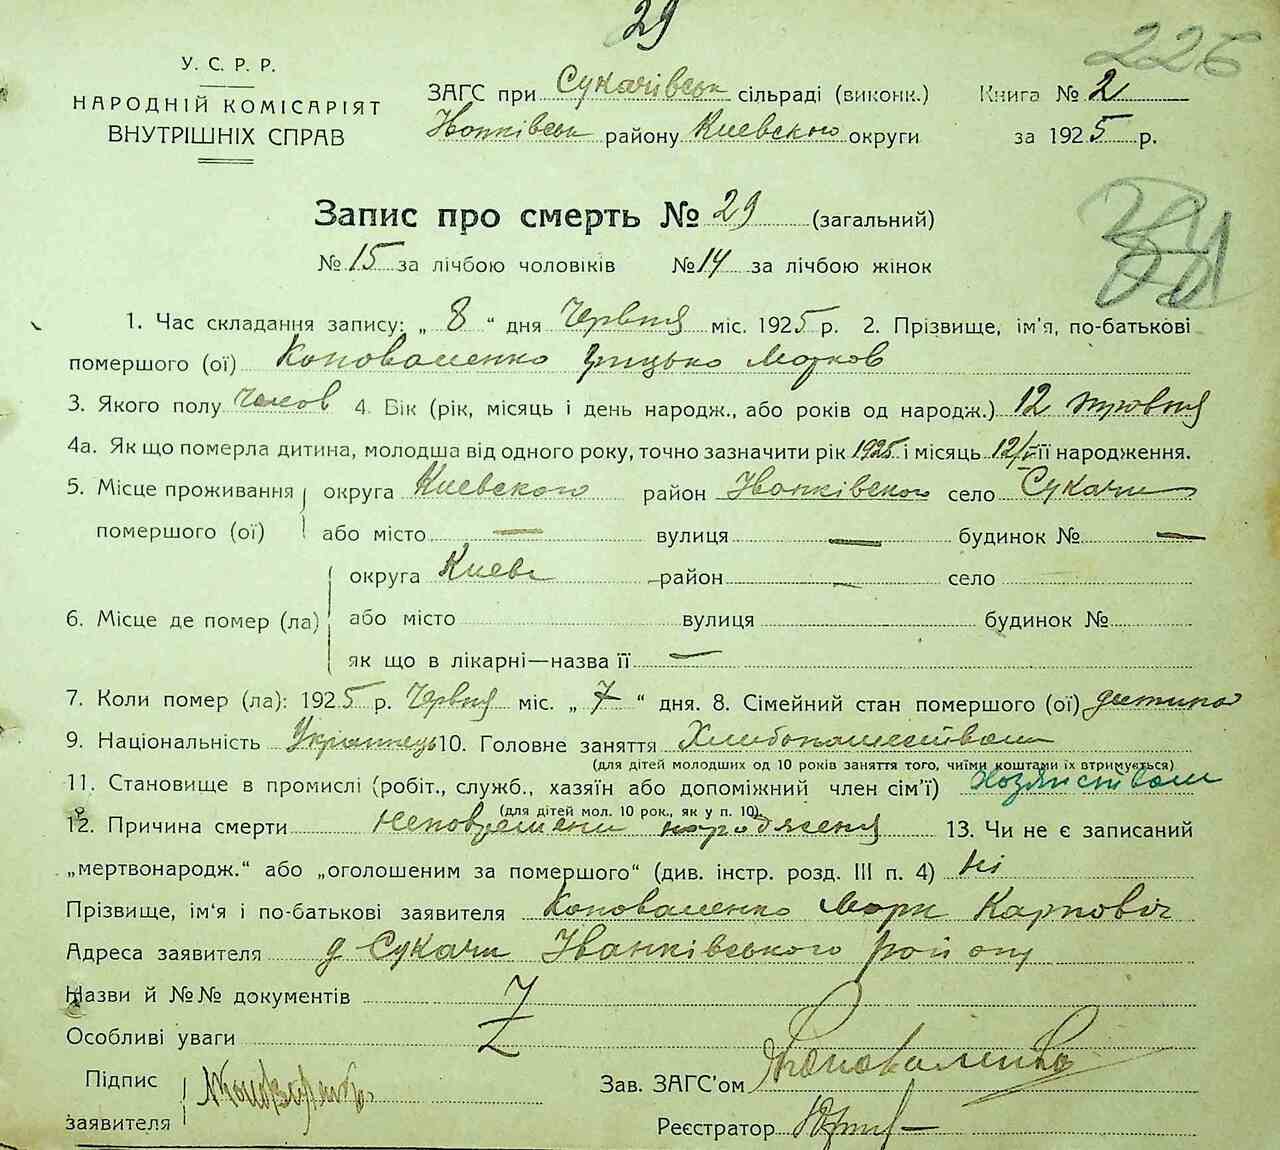 29
226
У. С. Р. Р.
НАРОДНІЙ КОМІСАРІЯТ
ВНУТРІШНІХ СПРАВ
ЗАГС при Сукачівськ сільраді (виконк.)
Іванківськ району Киевского округи
Книга № 2
за 1925 р.
Запис про смерть № 29 (загальний)
№ 15 за лічбою чоловіків № 14 за лічбою жінок
1. Час складання запису: „ 8 “ дня Червня міс. 1925 р. 2. Прізвище, ім'я, по-батькові
помершого (ої) Коноваленко Грицько Марков
3. Якого полу чолов 4. Вік (рік, місяць і день народж., або років од народж.) 12 травня
4а. Як що померла дитина, молодша від одного року, точно зазначити рік 1925 і місяць 12/V її народження.
5. Місце проживання округа Киевского район Іванківского село Сукачи
помершого (ої) або місто — вулиця — будинок № —
округа Киевс район — село
6. Місце де помер (ла) або місто вулиця будинок №
як що в лікарні—назва її —
7. Коли помер (ла): 1925 р. Червня міс. „ 7 “ дня. 8. Сімейний стан помершого (ої) дитина
9. Національність Українець 10. Головне заняття Хлибопашеством
(для дітей молодших од 10 років заняття того, чиїми коштами їх втримується)
11. Становище в промислі (робіт., служб., хазяїн або допоміжний член сім'ї) Хозяиством
(для дітей мол. 10 рок., як у п. 10)
12. Причина смерти народженя 13. Чи не є записаний
„мертвонародж.“ або „оголошеним за помершого“ (див. інстр. розд. III п. 4) Ні
Прізвище, ім'я і по-батькові заявителя Коноваленко Марк Карпович
Адреса заявителя д Сукачи Іванківського район
Назви й №№ документів
Особливі уваги
Підпис
заявителя
Зав. ЗАГС'ом Коноваленко
Реєстратор